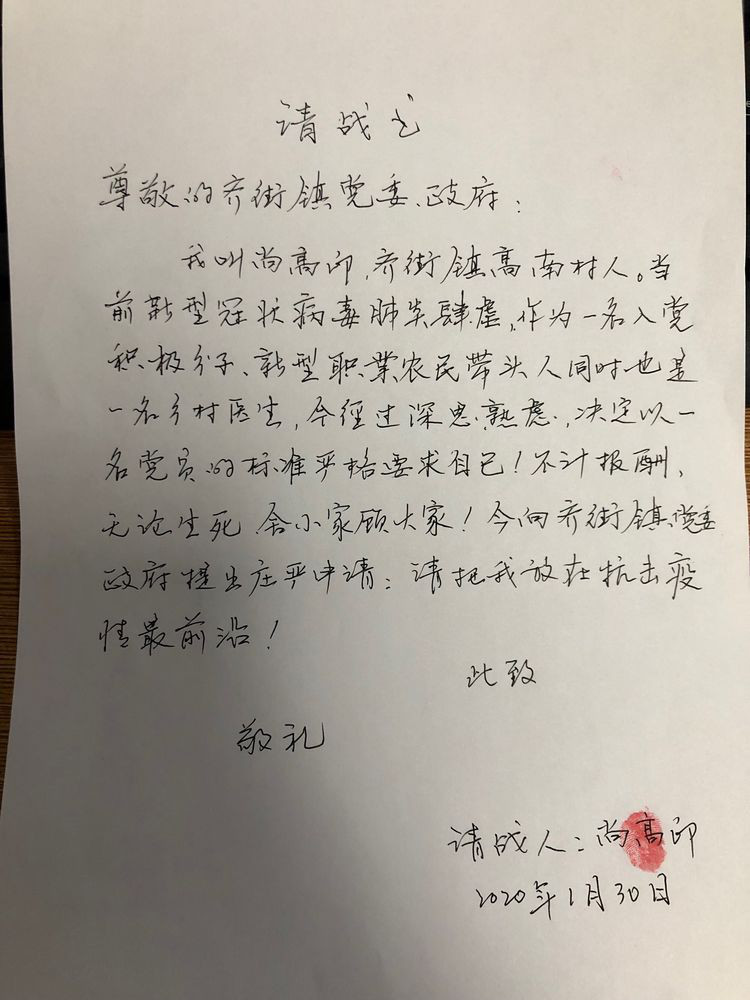 请战书
尊敬的齐街镇党委、政府：
我叫尚高印，齐街镇高南村人。当
前新型冠状病毒肺炎肆虐，作为一名入党
积极分子、新型职业农民带头人同时也是
一名乡村医生，今经过深思熟虑，决定以一
名党员的标准严格要求自己！不计报酬、
无论生死 舍小家顾大家！今向齐街镇党委
政府提出庄严申请：请把我放在抗击疫
情最前沿！
此致
敬礼
请战人：尚高印
2020年1月30日